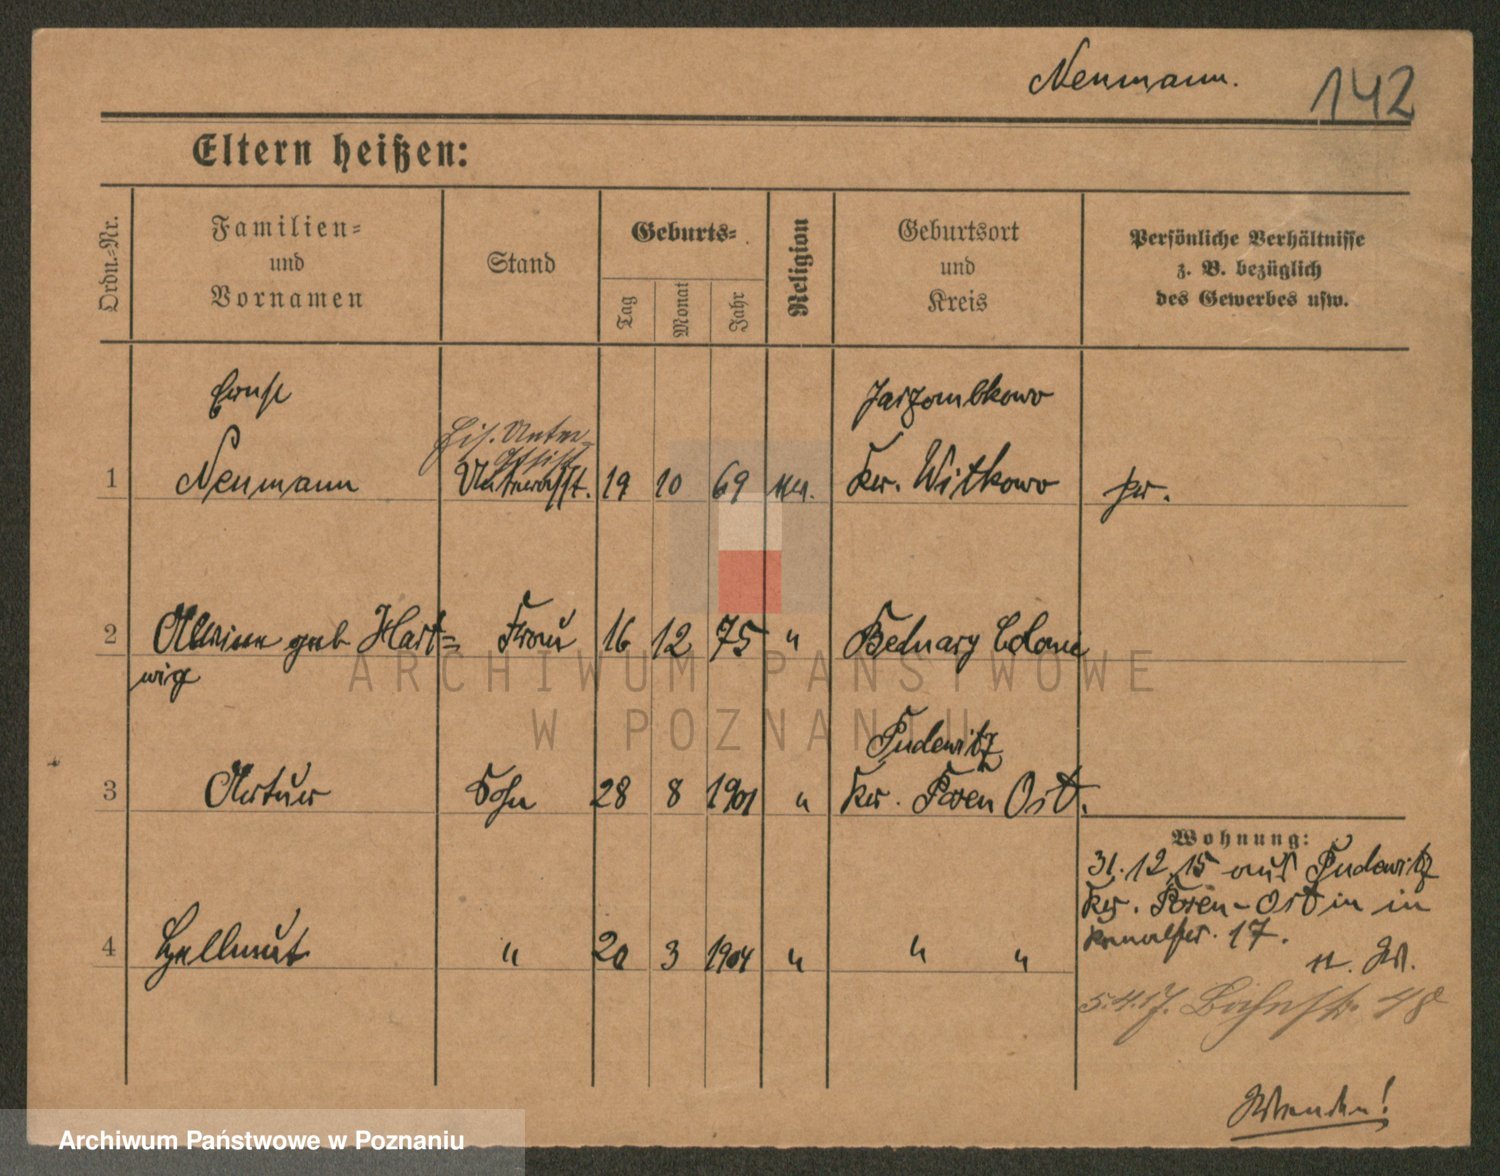 Neumann.
142
Eltern heißen:
Ordn.-Nr.
Familien-
und
Vornamen
Stand
Geburts-
Tag
Monat
Jahr
Religion
Geburtsort
und
Kreis
Persönliche Verhältnisse
z. B. bezüglich
des Gewerbes usw.
Ernst
Jarzombkowo
Eis. Unter-
Assist
1 Neumann Unterasst. 19 10 69 Kr. Witkowo pr.
2 geb Hart- Frau 16 12 75 " Bednary Colonie
wig
Pudewitz
3 Artur Sohn 28 8 1901 " Kr. Posen Ost.
Wohnung:
31.12.15 aus Pudewitz
Kr. Posen-Ost in in
17.
4 Hellmut " 20 3 1904 " " "
5.4.17. 48
Wenden!
ARCHIWUM PAŃSTWOWE
W POZNANIU
Archiwum Państwowe w Poznaniu